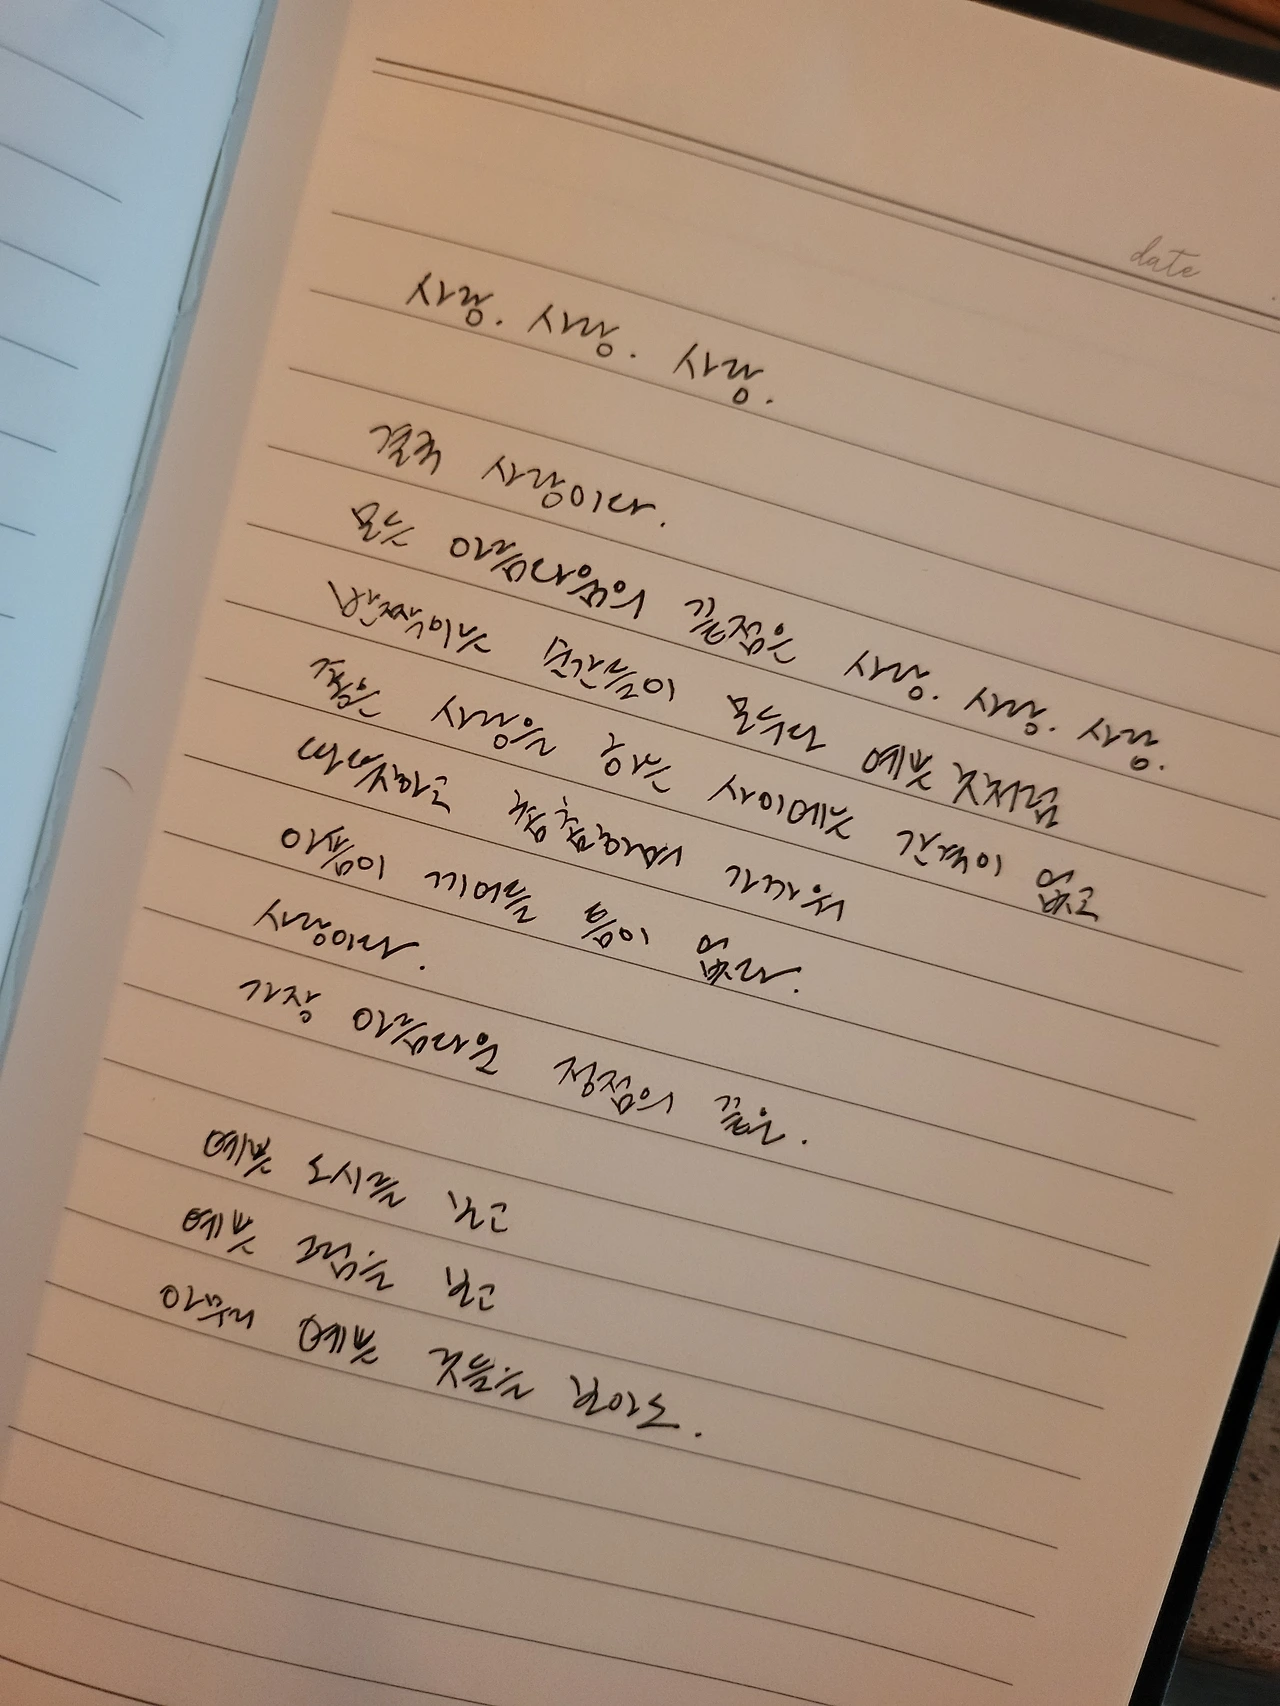 date
사랑. 사랑. 사랑.
결국 사랑이다.
모든 아름다움의 끝점은 사랑. 사랑. 사랑.
반짝이는 순간들이 모두다 예쁜 것처럼
좋은 사랑을 하는 사이에는 간격이 없고
따뜻하고 촘촘하게 가까워서
아픔이 끼어들 틈이 없다.
사랑이다.
가장 아름다운 정점의 끝은.
예쁜 도시를 보고
예쁜 그림을 보고
아무리 예쁜 것들을 보아도.